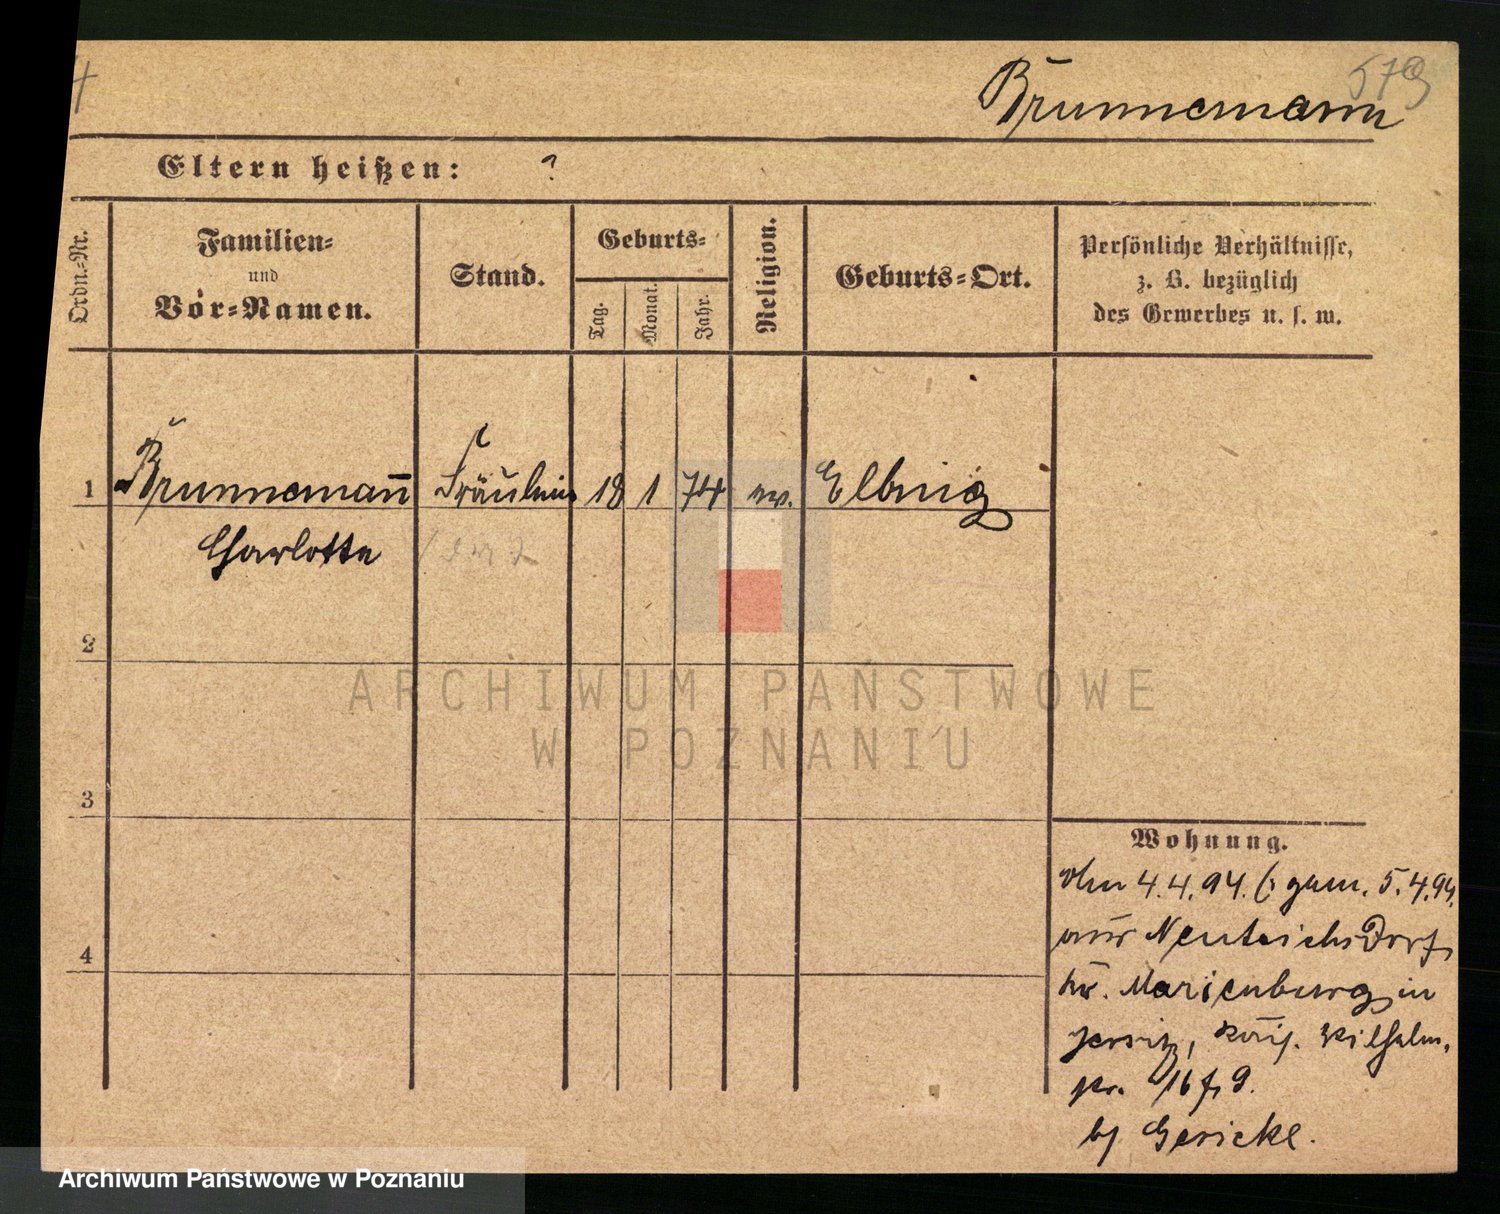 579
Brunnemann
Eltern heißen: ?
Ordn.-Nr.
Familien-
und
Vor-Namen.
Stand.
Geburts-
Tag.
Monat.
Jahr.
Religion.
Geburts-Ort.
Persönliche Verhältnisse,
z. B. bezüglich
des Gewerbes u. s. w.
1 Brunneman̄ Fräulein 18 1 74 ev. Elbing
Charlotte
2
3
4
Wohnung.
4.4.94. (: gem. 5.4.94.
aus Neuteichsdorf
Kr. Marienburg in
Jersitz, Kais. Wilhelm.
str. 16 f, 9.
bj Gericke.
ARCHIWUM PAŃSTWOWE
W POZNANIU
Archiwum Państwowe w Poznaniu